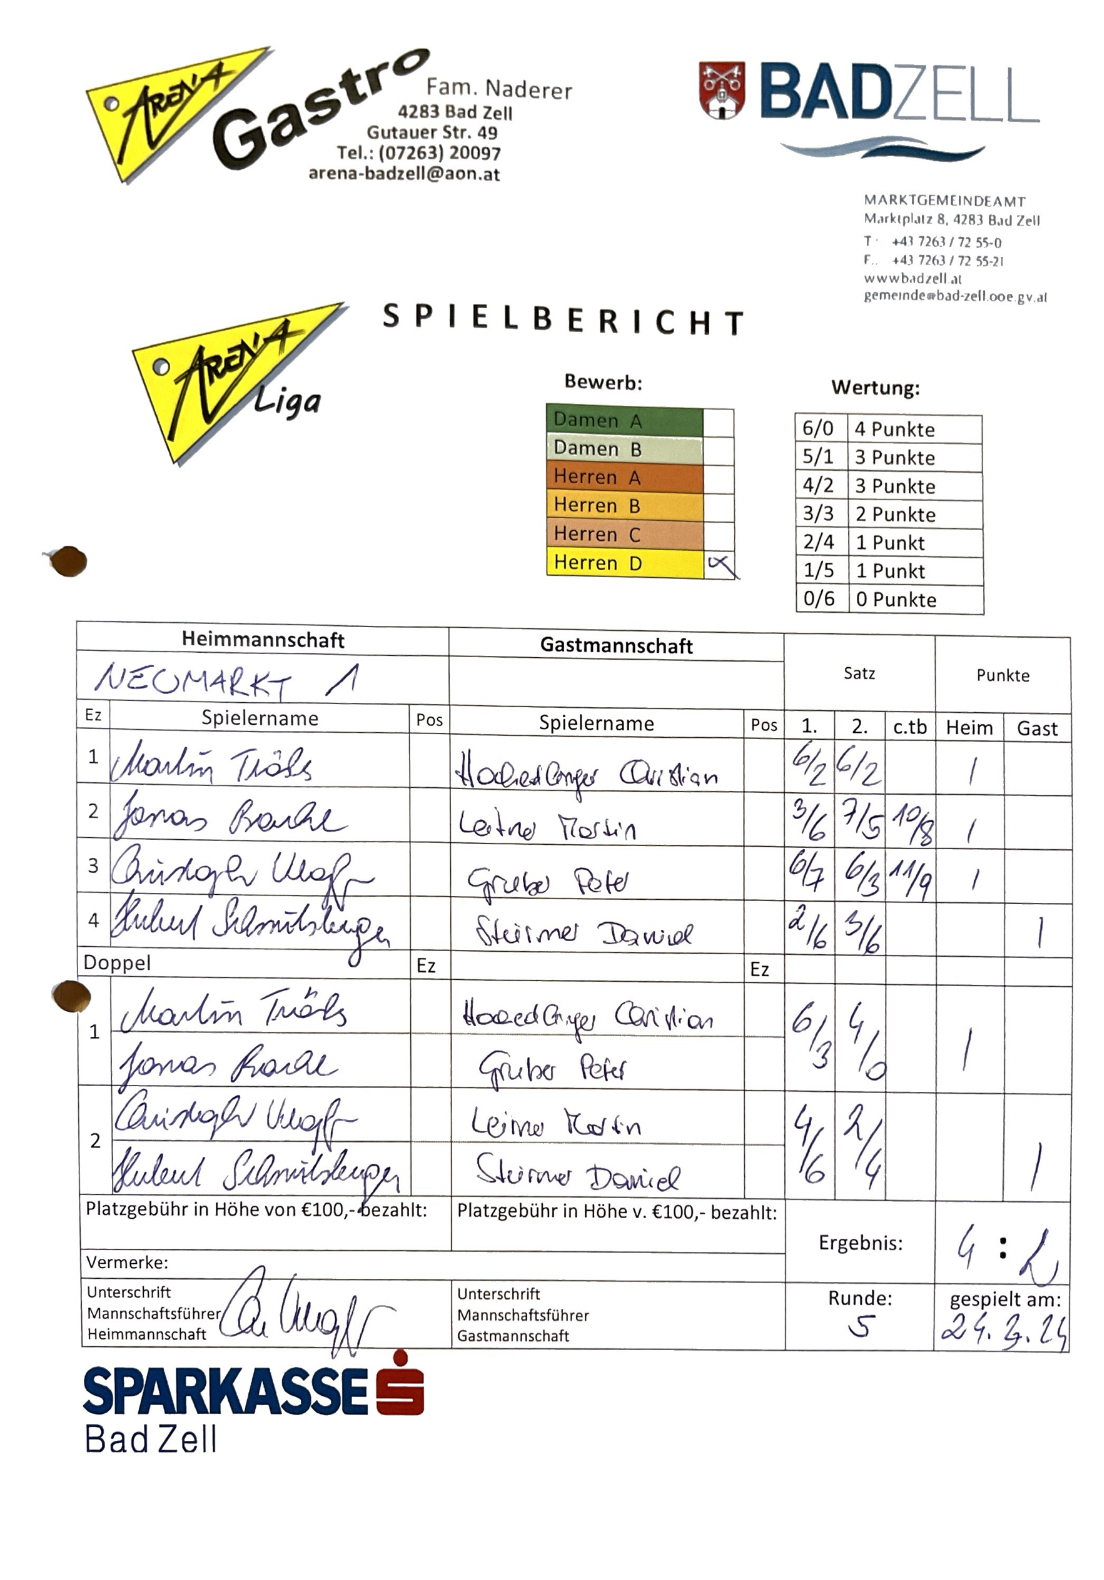 ARENA Gastro
Fam. Naderer
4283 Bad Zell
Gutauer Str. 49
Tel.: (07263) 20097
arena-badzell@aon.at
BADZELL
MARKTGEMEINDEAMT
Marktplatz 8, 4283 Bad Zell
T +43 7263 / 72 55-0
F. +43 7263 / 72 55-21
www.badzell.at
gemeinde@bad-zell.ooe.gv.at
SPIELBERICHT
ARENA Liga
Bewerb:
Damen A
Damen B
Herren A
Herren B
Herren C
Herren D x
Wertung:
6/0 4 Punkte
5/1 3 Punkte
4/2 3 Punkte
3/3 2 Punkte
2/4 1 Punkt
1/5 1 Punkt
0/6 0 Punkte
Heimmannschaft Gastmannschaft Satz Punkte
NEUMARKT 1
Ez Spielername Pos Spielername Pos 1. 2. c.tb Heim Gast
1 Martin Hochedlinger Christian 6/2 6/2 1
2 Jonas Leitner Martin 3/6 7/5 10/8 1
3 Christoph Gruber Peter 6/7 6/3 11/9 1
4 Hubert Stürmer Daniel 2/6 3/6 1
Doppel Ez Ez
1 Martin Hochedlinger Christian 6/3 4/0 1
Jonas Gruber Peter
2 Christoph Leitner Martin 4/6 2/4 1
Hubert Stürmer Daniel
Platzgebühr in Höhe von €100,- bezahlt: Platzgebühr in Höhe v. €100,- bezahlt: Ergebnis: 4 : 2
Vermerke:
Unterschrift Mannschaftsführer Heimmannschaft
Unterschrift Mannschaftsführer Gastmannschaft
Runde: 5
gespielt am: 24.3.24
SPARKASSE
Bad Zell